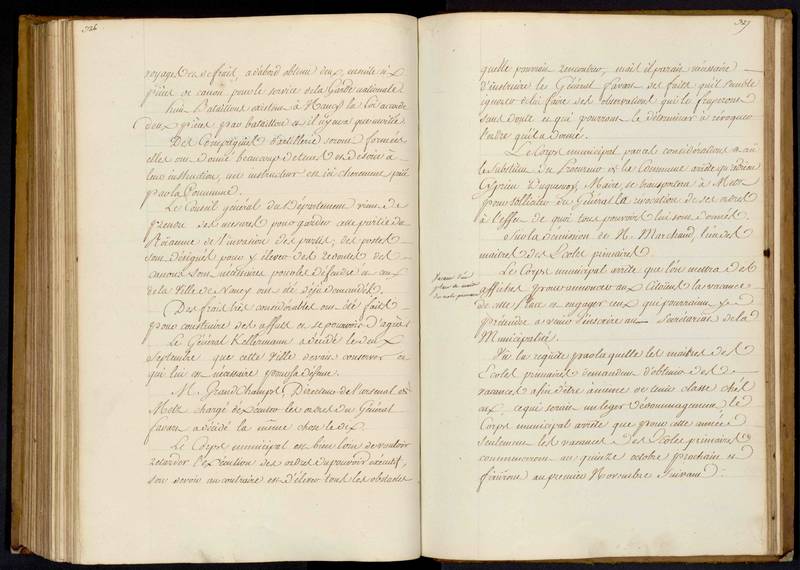 326
voyages en se frais, a d'abord obtenu deux, ensuite six
pièces de canon pour le service de la Garde nationale
huit Bataillons existent à Nancy la Loi accorde
deux pièces par bataillon et il n'y en a que
Des Compagnies d'artillerie seront formées
elles ont donné beaucoup de tems et de soins à
leur instruction, un instructeur est ici chèrement payé
par la Commune.
Le Conseil général du Département vient de
prendre des mesures pour garder cette partie du
Royaume de l'invasion des partis; des postes
sont désignés pour y élever des redoutes des
canons sont nécessaires pour les défendre et ceux
de la Ville de Nancy ont été déjà demandés.
Des frais très considérables ont été faits
pour construire des affuts et se pourvoir d'agrès
Le Général Kellermann a décidé le deux
Septembre que cette Ville devait conserver ce
qui lui est nécessaire pour sa défense.
M. Grandchamps, Directeur de l'arsenal de
Metz chargé d'exécuter les ordres du Général
favart a décidé la même chose le dix.
Le Corps municipal est bien loin de vouloir
retarder l'exécution des ordres du pouvoir exécutif,
son devoir au contraire est d'élever tous les obstacles
327
qu'elle pourrait rencontrer, mais il parait nécessaire
d'instruire le Général favart des faits qu'il semble
ignorer et lui faire des observations qui le frapperont
sans doute et qui pourront le déterminer à révoquer
l'ordre qu'il a donné.
Le Corps municipal par ces considérations et ouï
le substitut du Procureur de la Commune arrête que
Duquesnoy, Maire, se transportera à Metz
pour solliciter du Général la révocation de ses ordres
à l'effet de quoi tous pouvoirs lui sont donnés.
Sur la démission de N. Marchand, l'un des
maitres des Ecoles primaires
Vacance d'une
place de maitre
des écoles primaires
Le Corps municipal arrête que l'on mettra des
affiches pour annoncer au Citoiens la vacance
de cette place et engager ceux qui pourraient y
prétendre à venir s'inscrire au Secrétariat de la
Municipalité.
Vu la requête par laquelle les maitres des
Ecoles primaires demandent d'obtenir des
vacances afin d'être à même de tenir classe chés
eux, ce qui serait un léger dédommagement, le
Corps municipal arrête que pour cette année
seulement les vacances des Ecoles primaires
commenceront au quinze octobre prochain et
finiront au premier Novembre suivant.